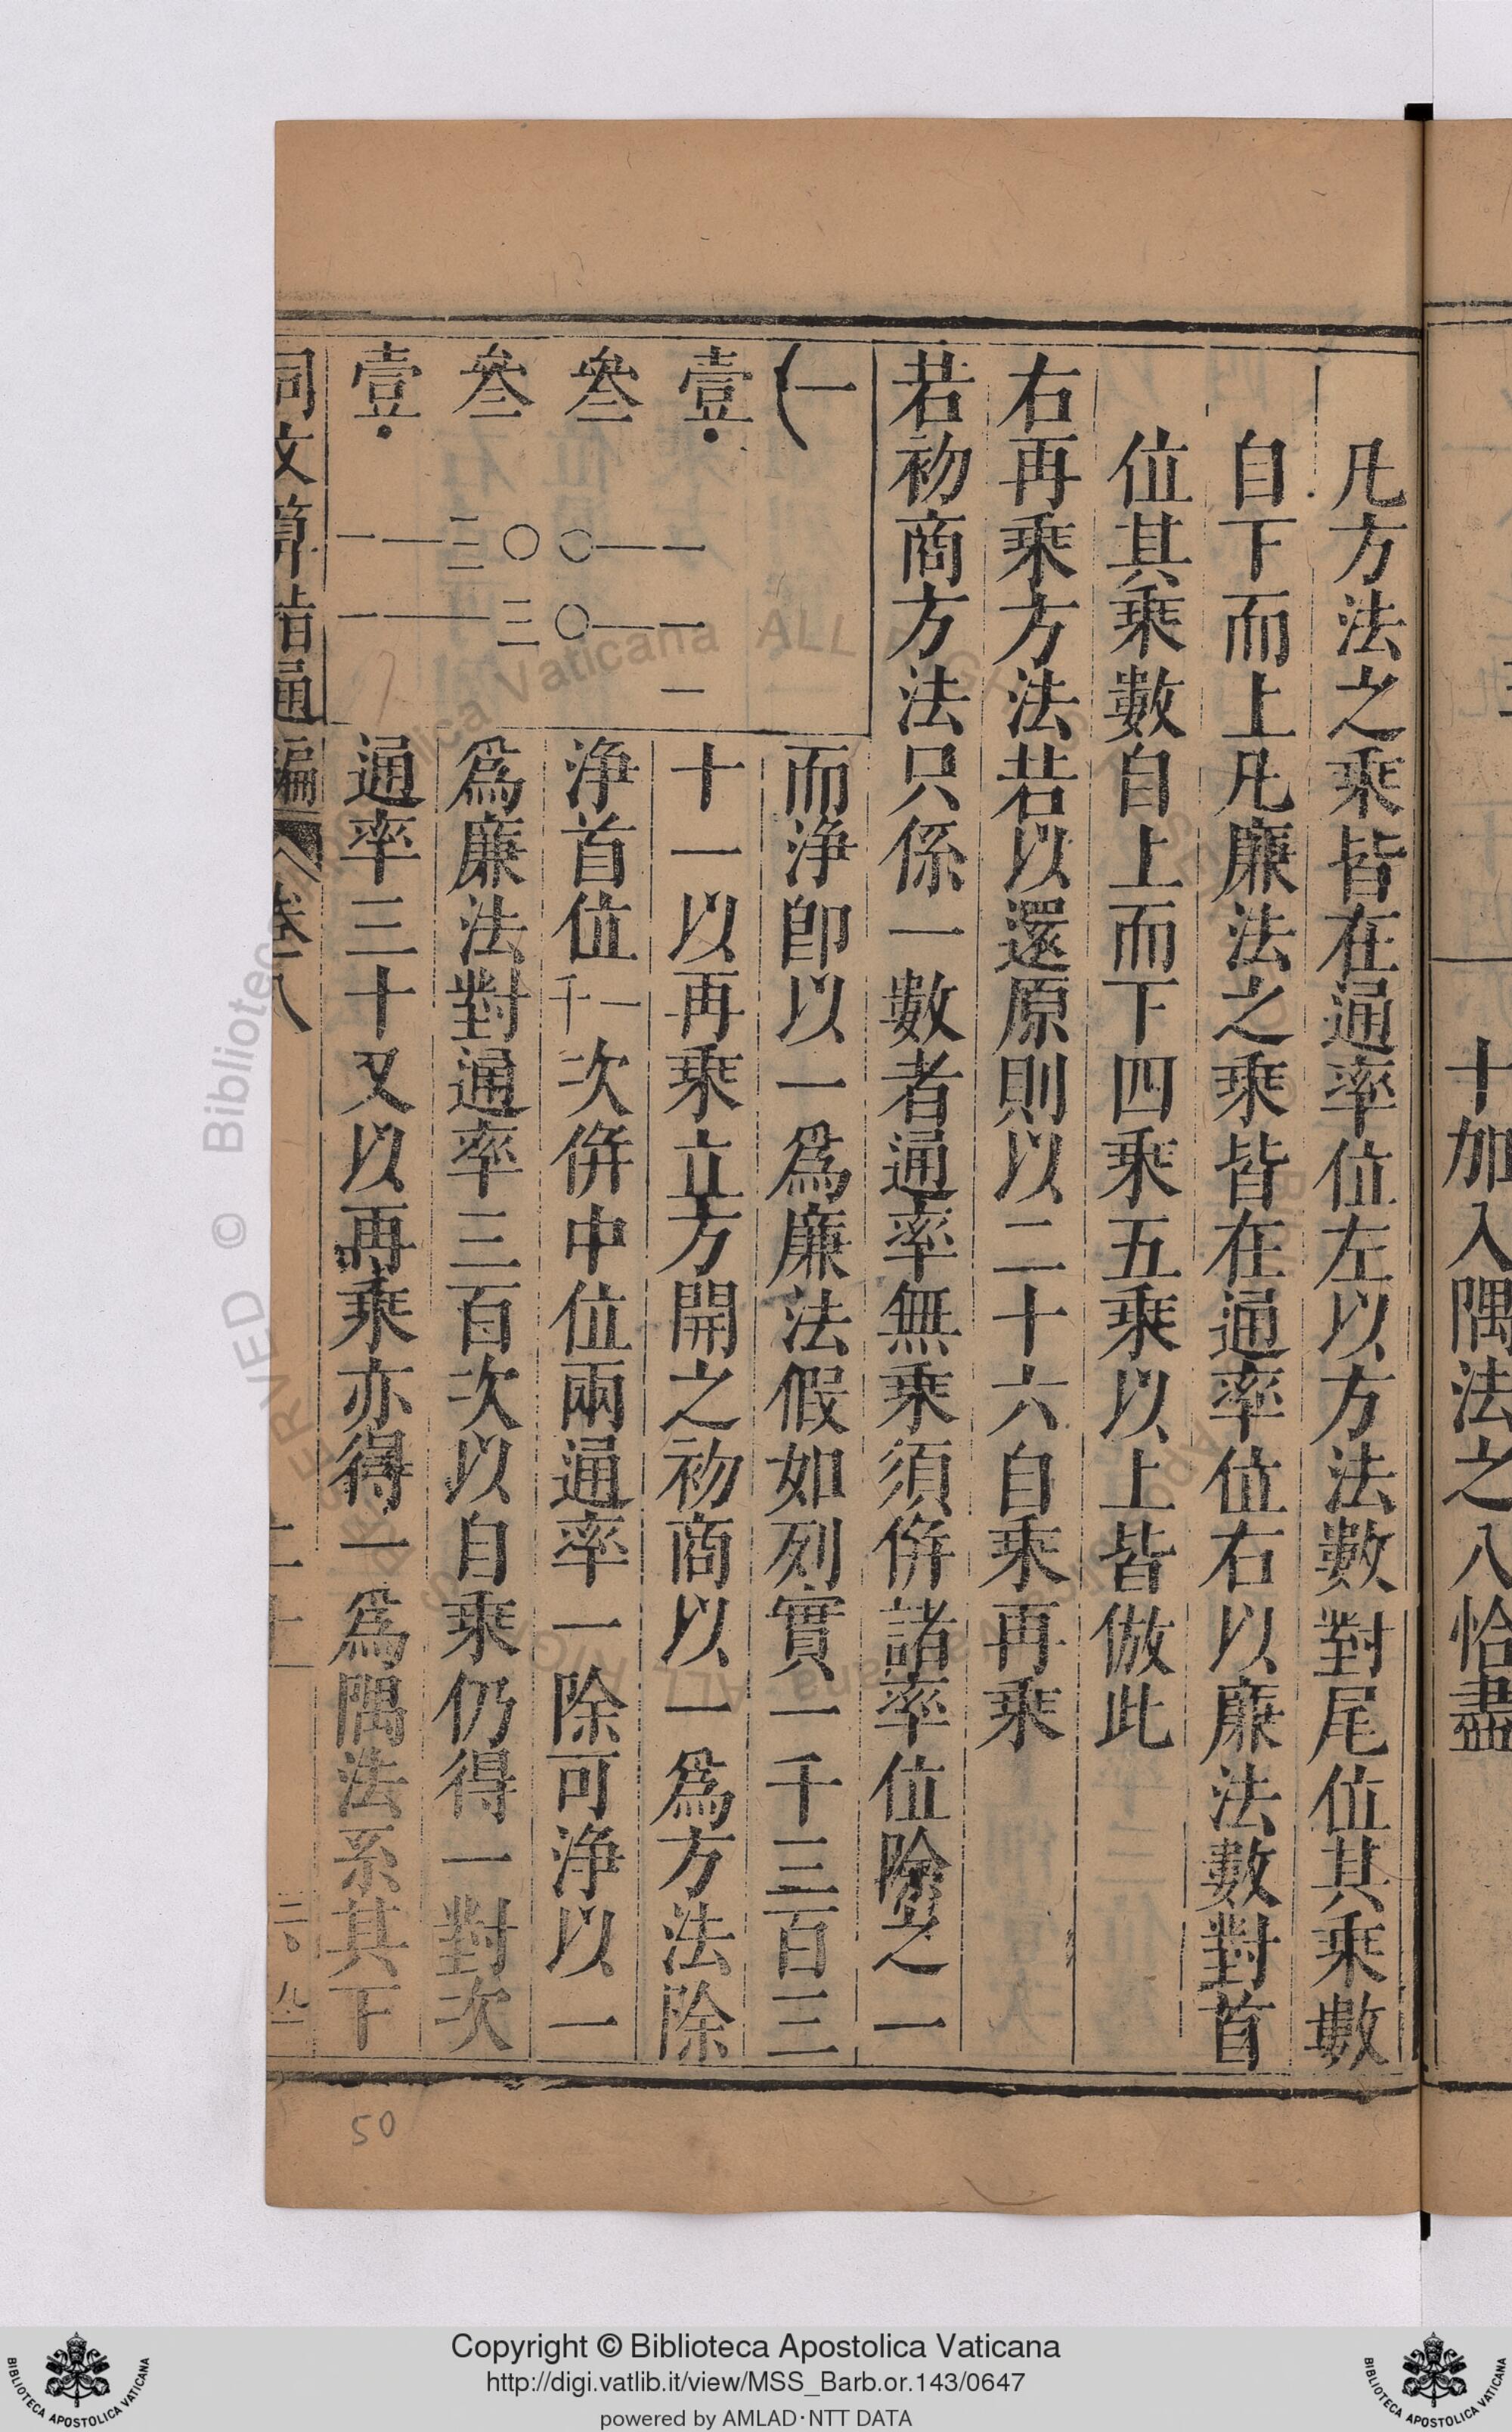 十加入隅法之八恰盡
凡方法之乘皆在通率位左以方法數對尾位其乘數
自下而上凡廉法之乘皆在通率位右以廉法數對首
位其乘數自上而下四乘五乘以上皆倣此
右再乘方法若以還原則以二十六自乘再乘
若初商方法只係一數者通率無乘須併諸率位除之一
一
壹
叁
叁
壹
一一〇〇三一一
一一〇三一一
一
而净即以一爲廉法假如列實一千三百三
十一以再乘立方開之初商以一爲方法除
净首位一千次併中位兩通率一除可净以一
爲廉法對通率三百次以自乘仍得一對次
通率三十又以再乘亦得一爲隅法系其下
同文算指通編
卷八
50
Copyright © Biblioteca Apostolica Vaticana
http://digi.vatlib.it/view/MSS_Barb.or.143/0647
powered by AMLAD·NTT DATA
BIBLIOTECA APOSTOLICA VATICANA
BIBLIOTECA APOSTOLICA VATICANA